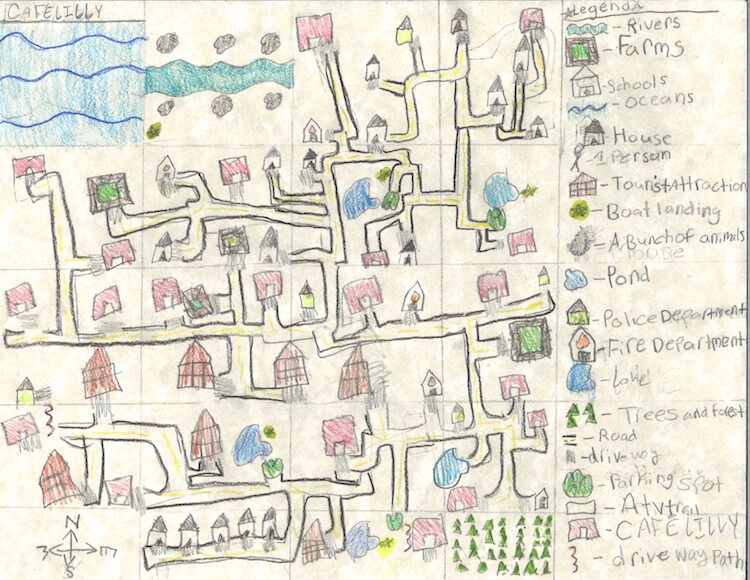 CAFELILLY
Legend
Rivers
Farms
Schools
Oceans
House
1 Person
Tourist Attraction
Boat landing
A Bunch of animals
Pond
Police Department
Fire Department
Lake
Trees and forest
Road
drive way
Parking Spot
Atv trail
CAFELILLY
drive way Path
N
E
S